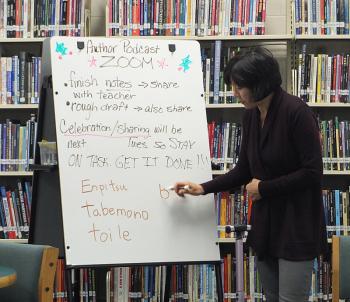 Author Podcast
ZOOM
• finish notes → share
with teacher
• rough draft → also share
Celebration/sharing will be
next Tues so STAY
ON TASK. GET IT DONE!!!
Enpitsu
Tabemono
toile